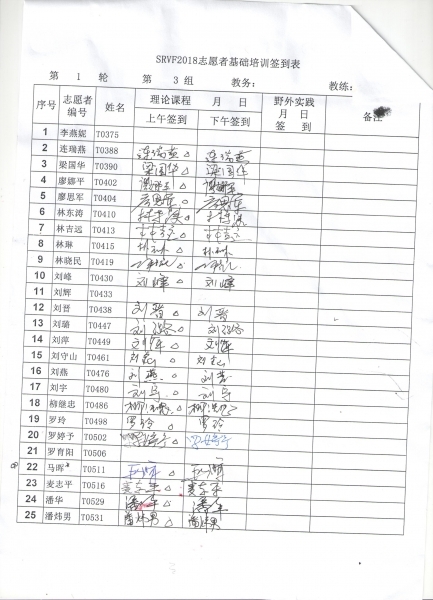 SRVF2018志愿者基础培训签到表
第 1 轮 第 3 组 教务: 教练:
序号 志愿者编号 姓名 理论课程 月 日 野外实践 月 日 签 到 备注
上午签到 下午签到
1 李燕妮 T0375
2 连瑞燕 T0388 连瑞燕 连瑞燕
3 梁国华 T0390 梁国华 梁国华
4 廖娜平 T0402
5 廖思军 T0404
6 林东涛 T0410
7 林吉远 T0413
8 林琳 T0415 林琳 林琳
9 林晓民 T0419
10 刘峰 T0430 刘峰 刘峰
11 刘辉 T0433
12 刘晋 T0438 刘晋 刘晋
13 刘璐 T0447 刘璐 刘璐
14 刘萍 T0449
15 刘守山 T0461
16 刘燕 T0476 刘燕 刘燕
17 刘宇 T0480 刘宇 刘宇
18 柳继忠 T0486
19 罗玲 T0498 罗玲 罗玲
20 罗婷予 T0502 罗婷予 罗婷予
21 罗育阳 T0506
22 马晖 T0511
23 麦志平 T0516
24 潘华 T0529 潘华 潘华
25 潘炜男 T0531 潘炜男 潘炜男